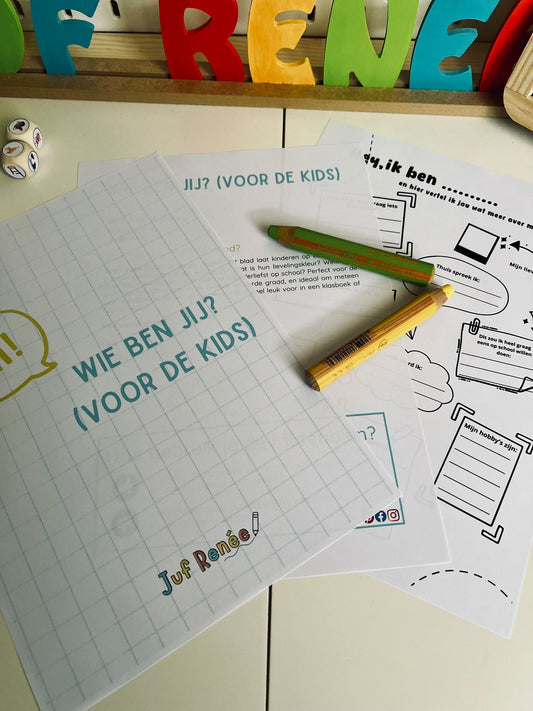 F RENÉE
JIJ? (VOOR DE KIDS)
WIE BEN JIJ?
(VOOR DE KIDS)
Juf Renée
blad laat kinderen op
at is hun lievelingskleur?
erliefst op school? Perfect voor de
rde graad, en ideaal om meteen
el leuk voor in een klasboek of
n?
ik ben ..........
en hier vertel ik jou wat meer over m
raag iets
Thuis spreek ik:
Mijn lie
Dit zou ik heel graag
eens op school willen
doen:
Mijn hobby's zijn: